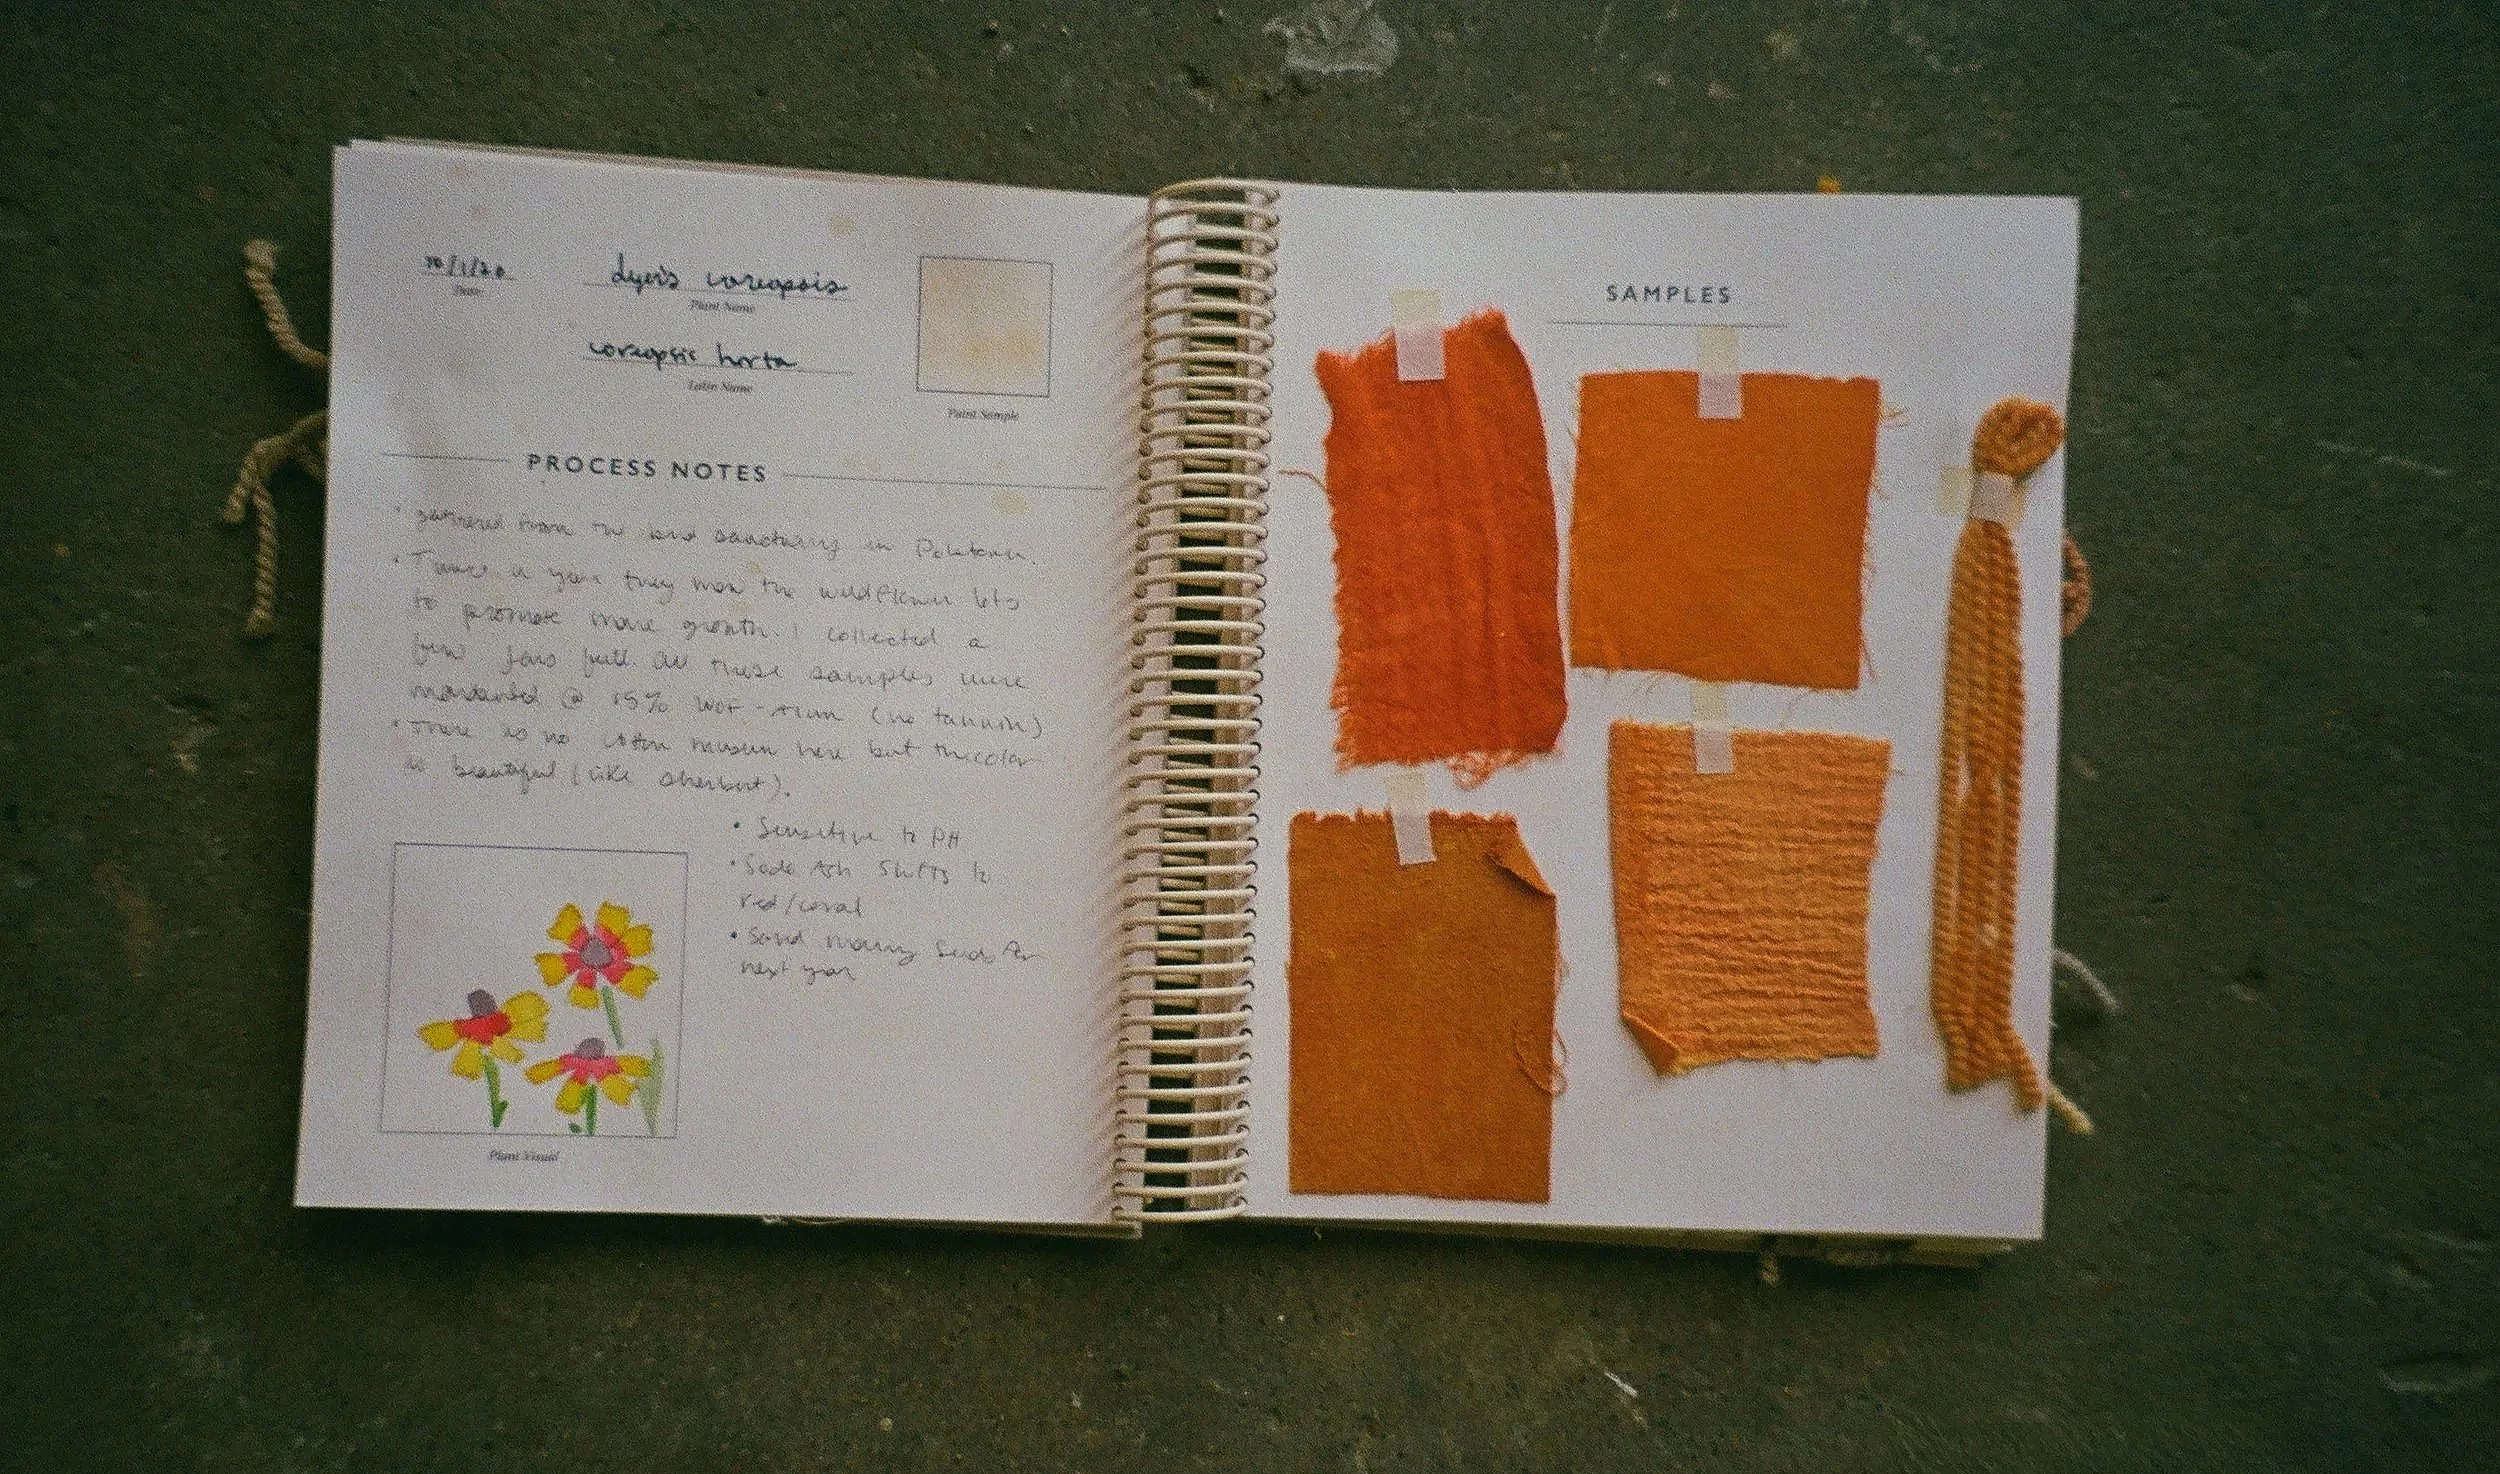 10/1/20
Date
dyer's coreopsis
Plant Name
coreopsis horta
Latin Name
Paint Sample
PROCESS NOTES
• gathered from the bird sanctuary in
• Twice a year they mow the wildflower lots
to promote more growth. I collected a
few jars full. All these samples were
mordanted @ 15% WOF - Alum (no tannin)
• There is no cotton muslin here but the color
is beautiful (like sherbert).
• Sensitive to PH
• Soda Ash Shifts to
red/coral
• Save many seeds for
next year
Plant Visual
SAMPLES